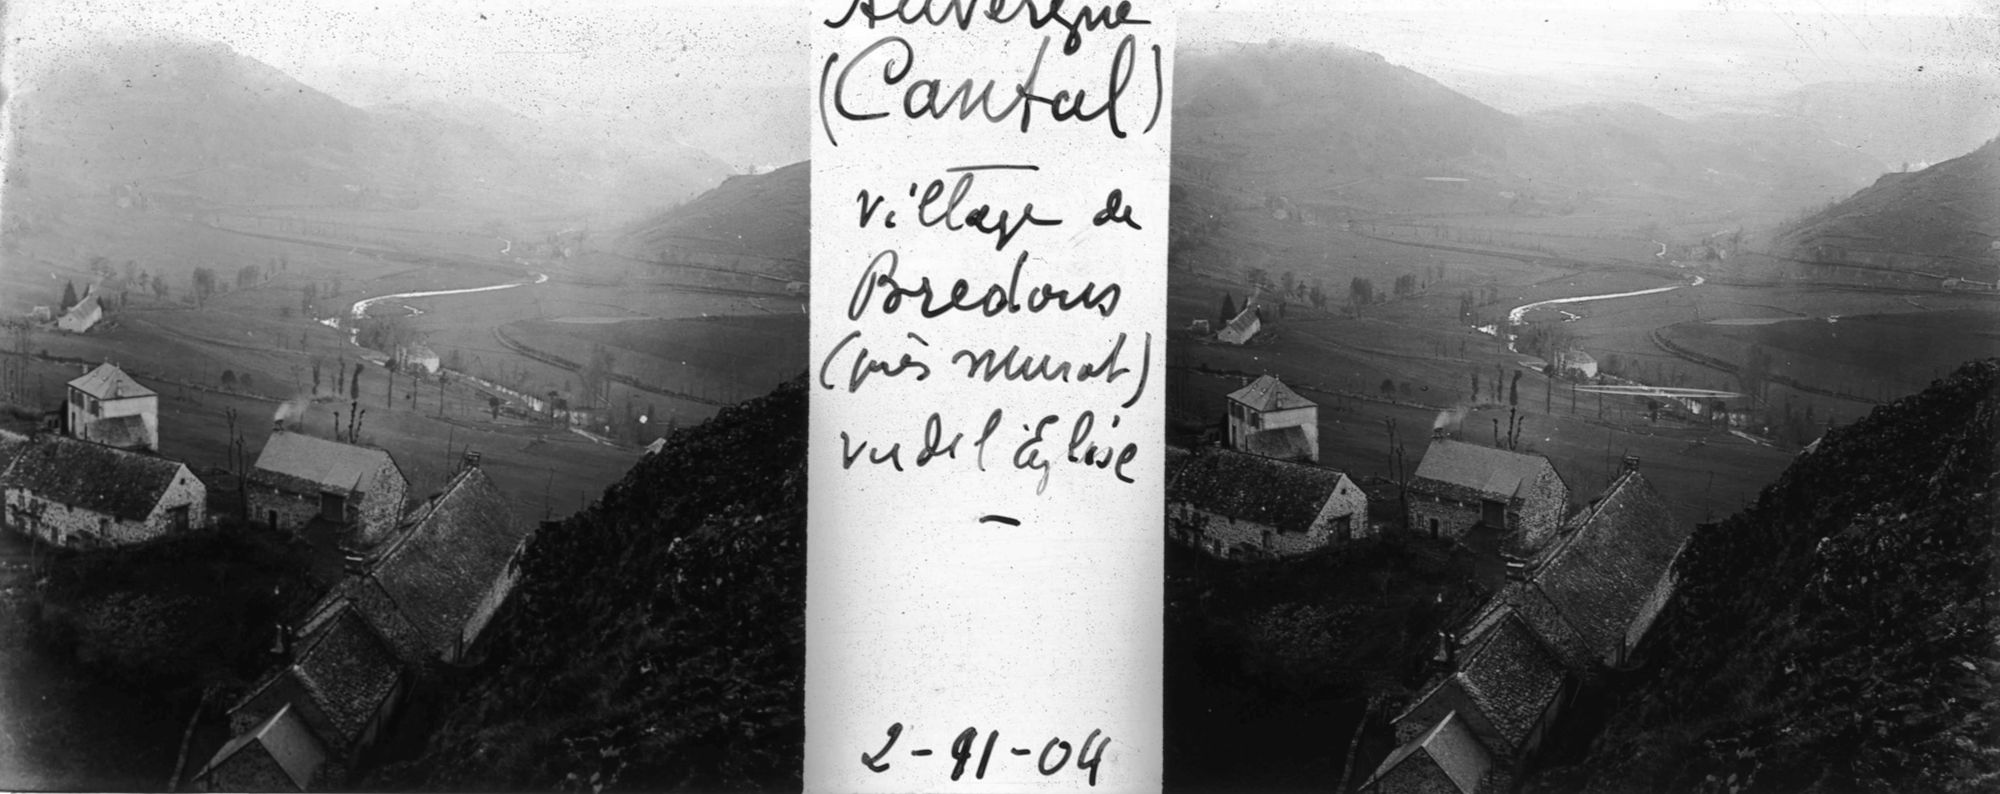 Auvergne
(Cantal)
village de
Bredons
(près Murat)
vu de l'Eglise
2-11-04